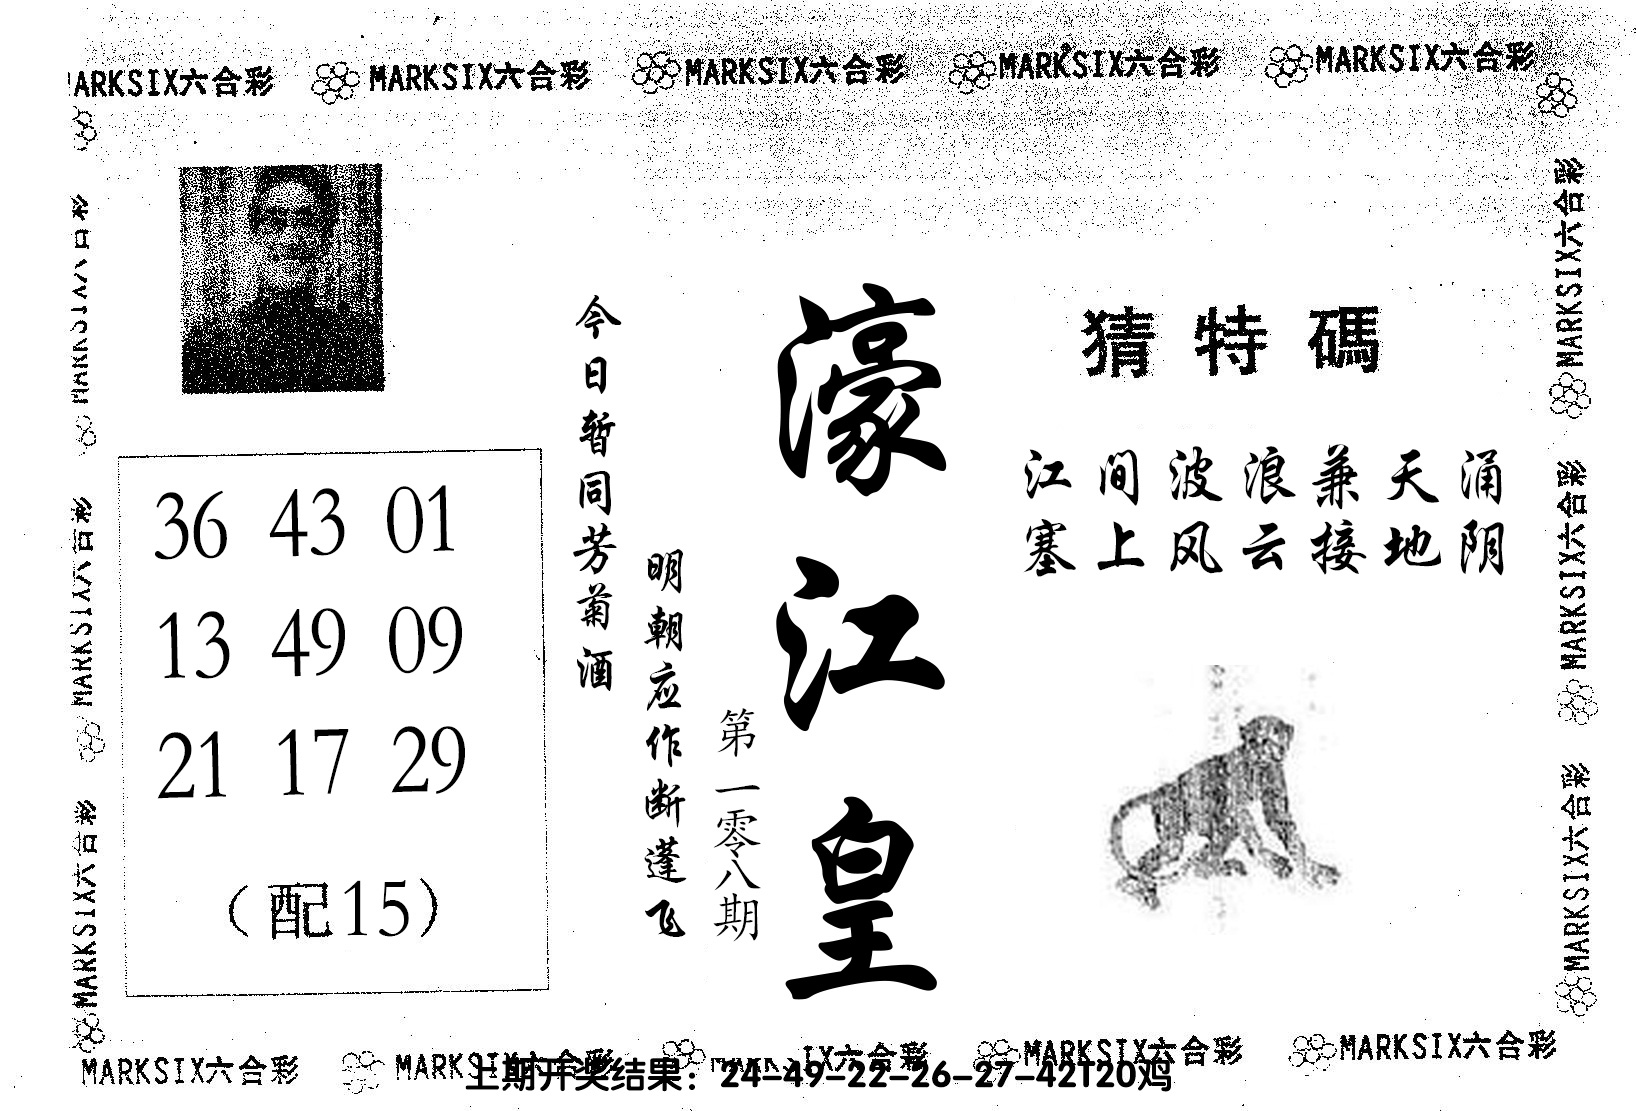 MARKSIX六合彩 MARKSIX六合彩 MARKSIX六合彩 MARKSIX六合彩
ARKSIX六合彩
猜特碼
江间波浪兼天涌
塞上风云接地阴
濠江皇
第一零八期
今日暂同芳菊酒
明朝应作断蓬飞
36 43 01
13 49 09
21 17 29
（配15）
MARKSIX六合彩
MARKSIX六合彩
MARKSIX六合彩
MARKSIX六合彩
MARKSIX六合彩
MARKSIX六合彩
MARKSIX六合彩 MARKSIX六合彩 IX六合彩 MARKSIX六合彩 MARKSIX六合彩
上期开奖结果：24-49-22-26-27-42T20鸡